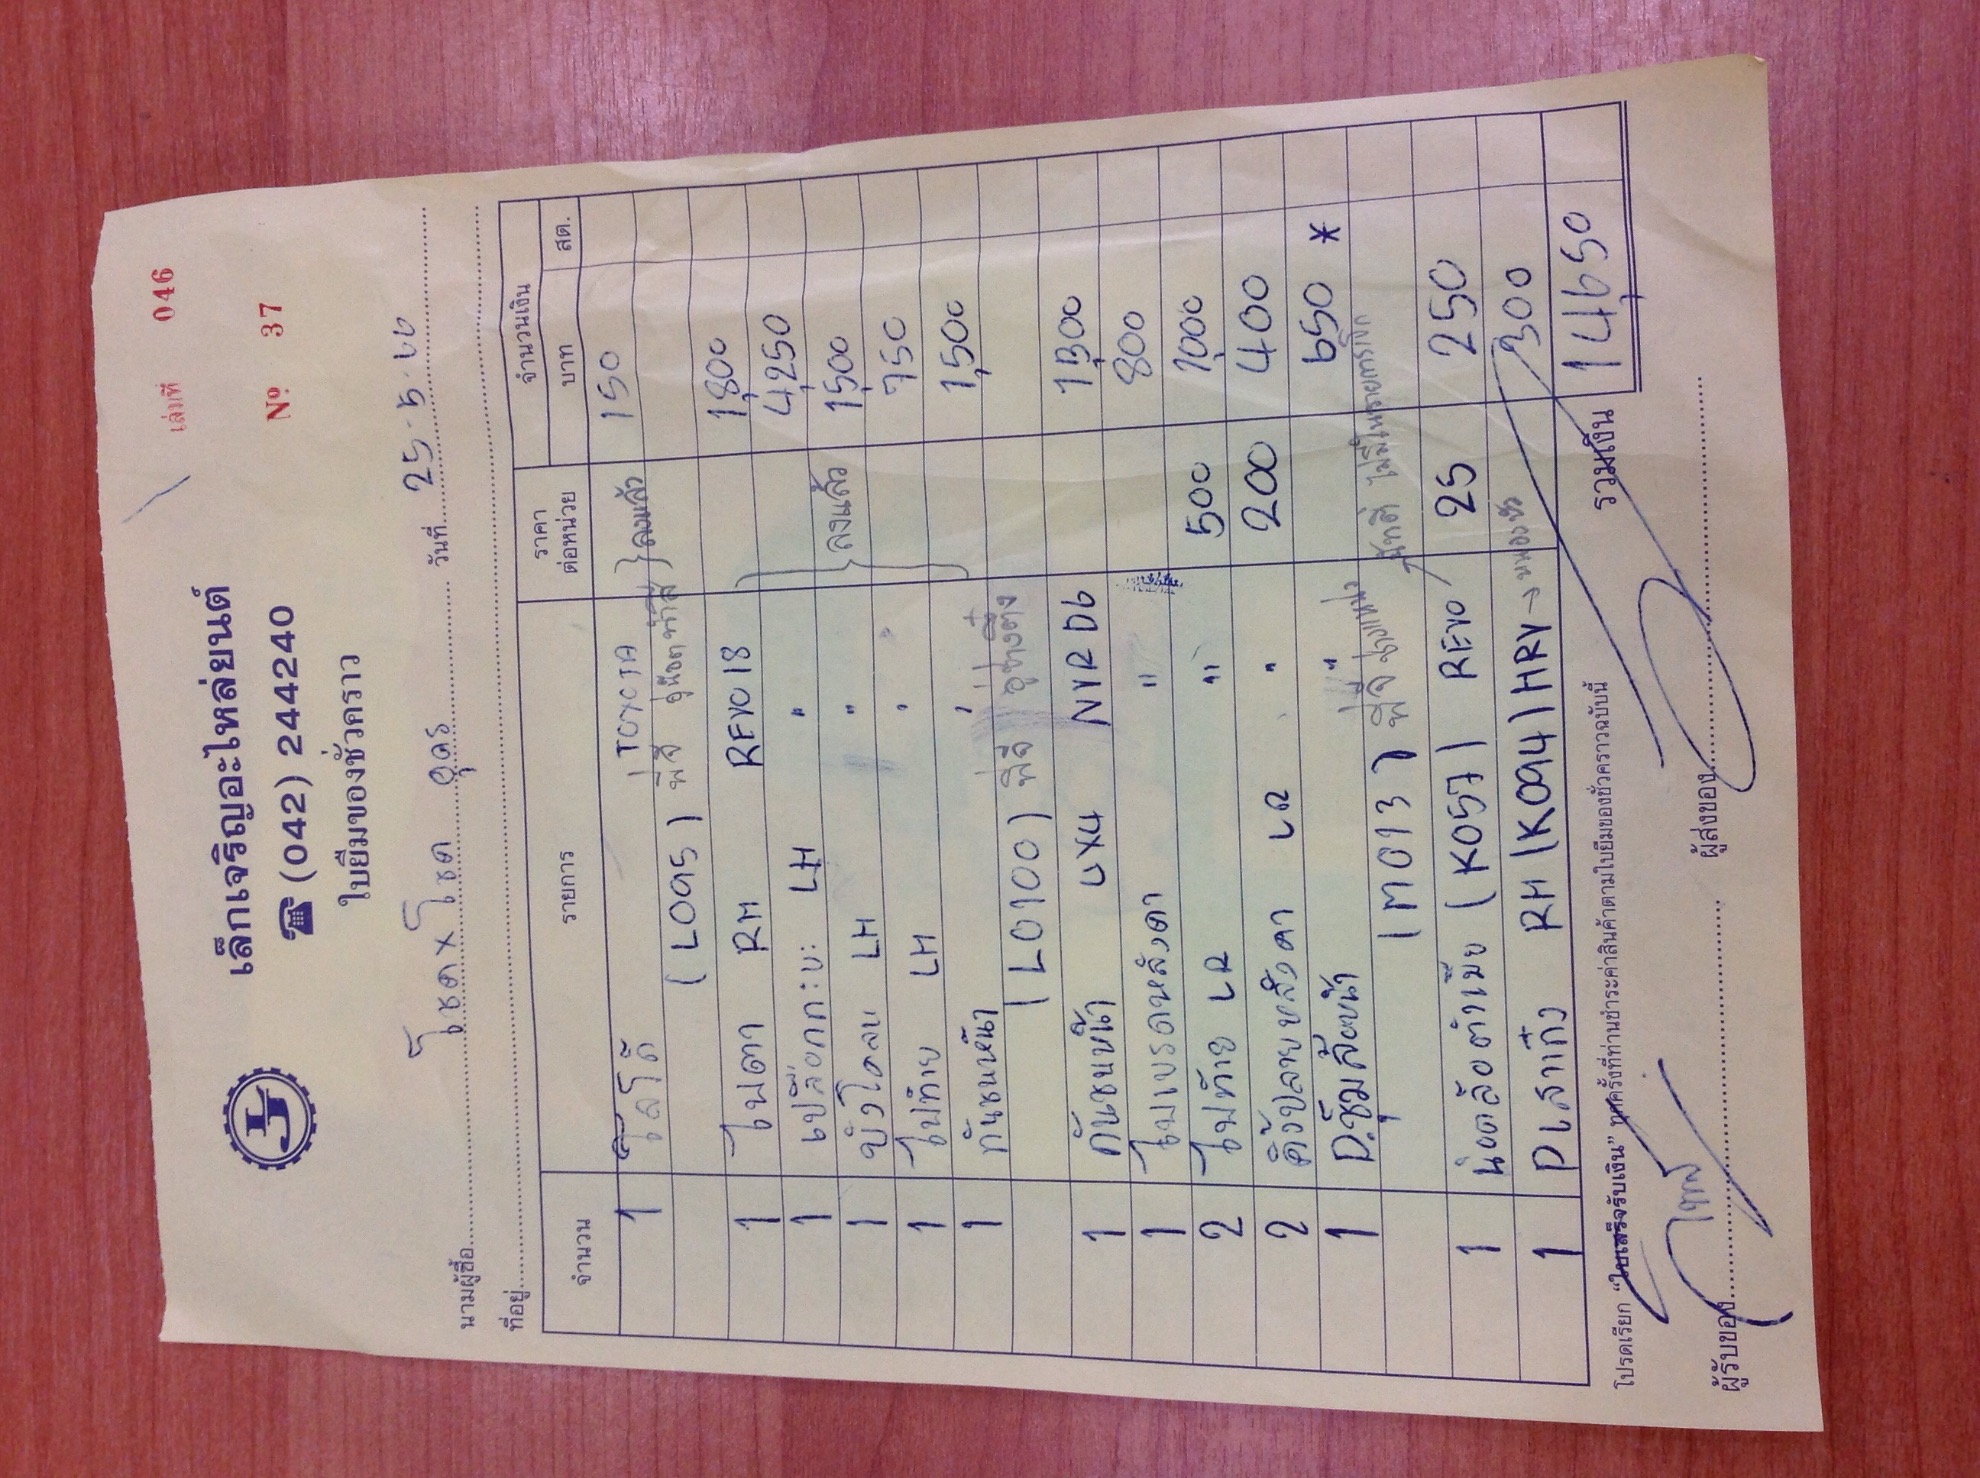 เล่มที่ 046
เล็กเจริญอะไหล่ยนต์
☎ (042) 244240
Nº 37
ใบยืมของชั่วคราว
นามผู้ซื้อ โชคxโชค อุดร วันที่ 25-5-66
ที่อยู่
จำนวน รายการ ราคาต่อหน่วย จำนวนเงิน
บาท สต.
1 โลโก้ TOYOTA 150
(L095) พี่จี } ลงแล้ว
1 ไฟตา RH REVO 18 1,800
1 เปลือกกะบะ LH " 4,250
1 บังโคลน LH " } ลงแล้ว 1,500
1 ไฟท้าย LH " 750
1 กันชนหน้า " 1,500
(L0100) พี่จี
1 กันชนหน้า 4x4 NYR D6 1,300
1 ไฟเบรคหลังคา " 800
2 ไฟท้าย LR " 500 1,000
2 คิ้วปลายหลังคา LR " 200 400
1 P.ซุ้มล้อหน้า " 650 *
(M013) พี่จี ไม่มีในรายการเบิก
1 น๊อตล้อตัวเมีย (K057) REVO 25 250
1 P เสากึ่ง RH (K094) HRV 300
รวมเงิน 14650
โปรดเรียก "ใบเสร็จรับเงิน" ทุกครั้งที่ท่านชำระค่าสินค้าตามใบยืมของชั่วคราวฉบับนี้
ผู้รับของ ผู้ส่งของ